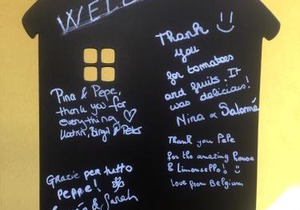 WELCO
Pina & Pepe,
thank you for
everything ♡
Katrit, Birgit & Peter
Grazie per tutto
Peppe!
& Sarah
Thank
you
for tomatoes
and fruits. It
was delicious!
Nina & Salomé
Thank you Pepe
for the amazing
& Limoncello!
love from Belgium